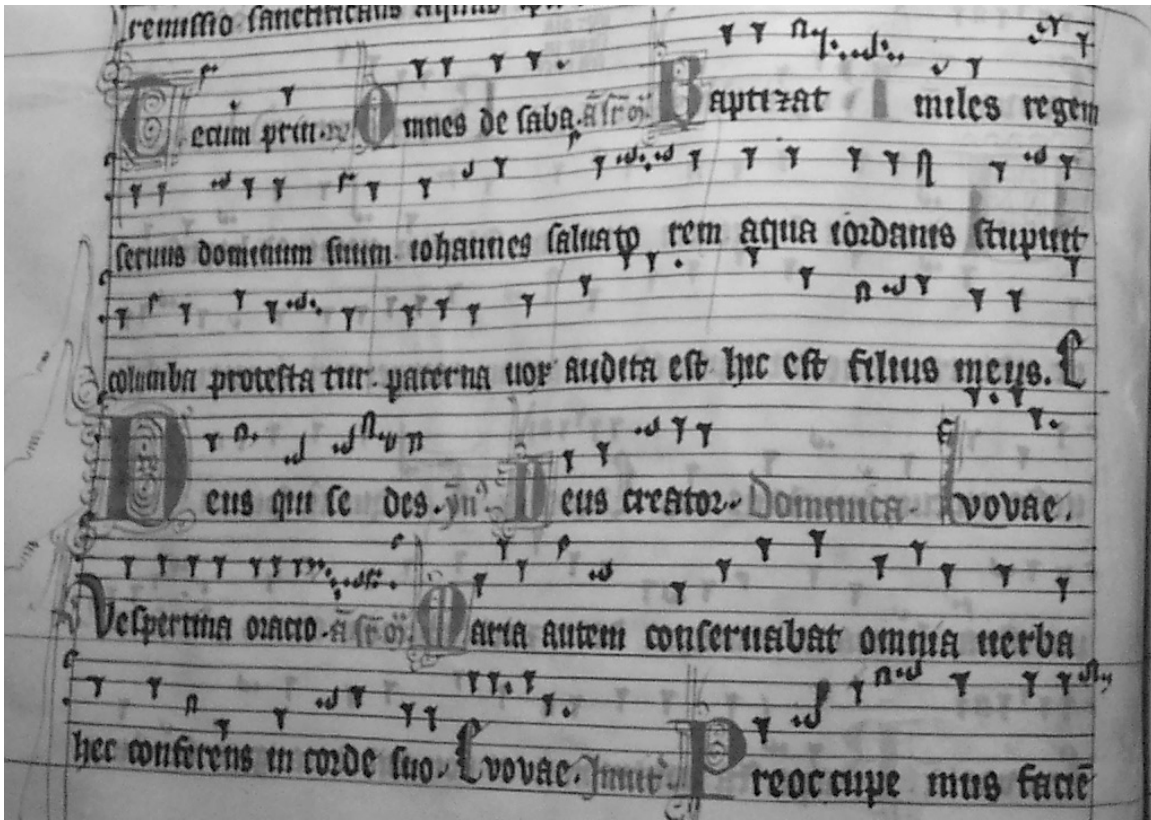 remissio sanctificans aquas
Tecum prin. Omnes de saba. Baptizat miles regem
seruus dominum suum iohannes saluato rem aqua iordanis stupuit
columba protesta tur. paterna uox audita est hic est filius meus.
Deus qui se des. Deus creator. Dominica. Evovae.
Vespertina oracio. Maria autem conseruabat omnia uerba
hec conferens in corde suo. Evovae. Preoccupe mus facie